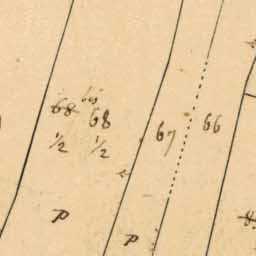 68 bis 68 67 66
1/2 1/2
P
P